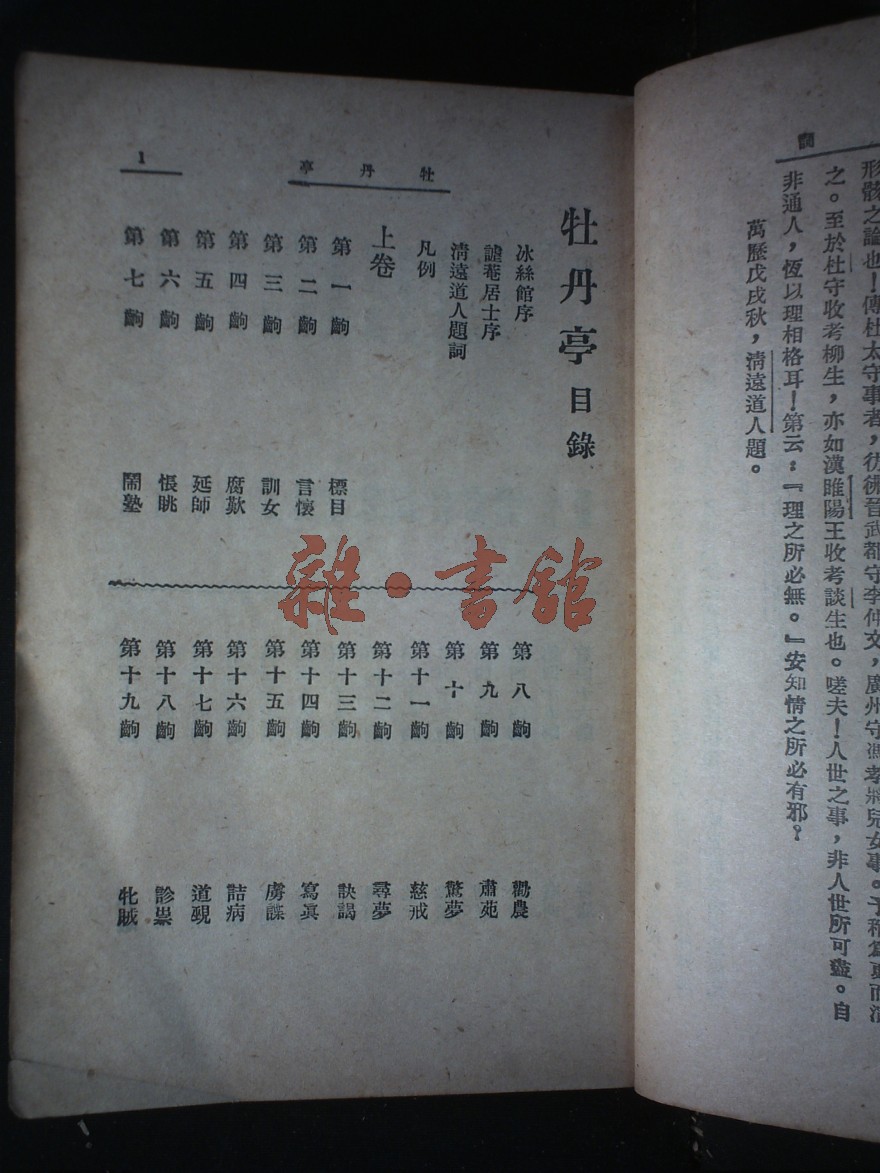 詞
形骸之論也！傳杜太守事者，彷彿晉武都守李仲文，廣州守馮孝將兒女事。予稍爲更而演
之。至於杜守收考柳生，亦如漢睢陽王收考談生也。嗟夫！人世之事，非人世所可盡。自
非通人，恆以理相格耳！第云：『理之所必無。』安知情之所必有邪？
萬歷戊戌秋，淸遠道人題。
牡丹亭
1
牡丹亭目錄
冰絲館序
謔菴居士序
淸遠道人題詞
凡例
上卷
第一齣 標目
第二齣 言懷
第三齣 訓女
第四齣 腐歎
第五齣 延師
第六齣 悵眺
第七齣 鬧塾
第八齣 勸農
第九齣 肅苑
第十齣 驚夢
第十一齣 慈戒
第十二齣 尋夢
第十三齣 訣謁
第十四齣 寫眞
第十五齣 虜諜
第十六齣 詰病
第十七齣 道覡
第十八齣 診祟
第十九齣 牝賊
雜·書館